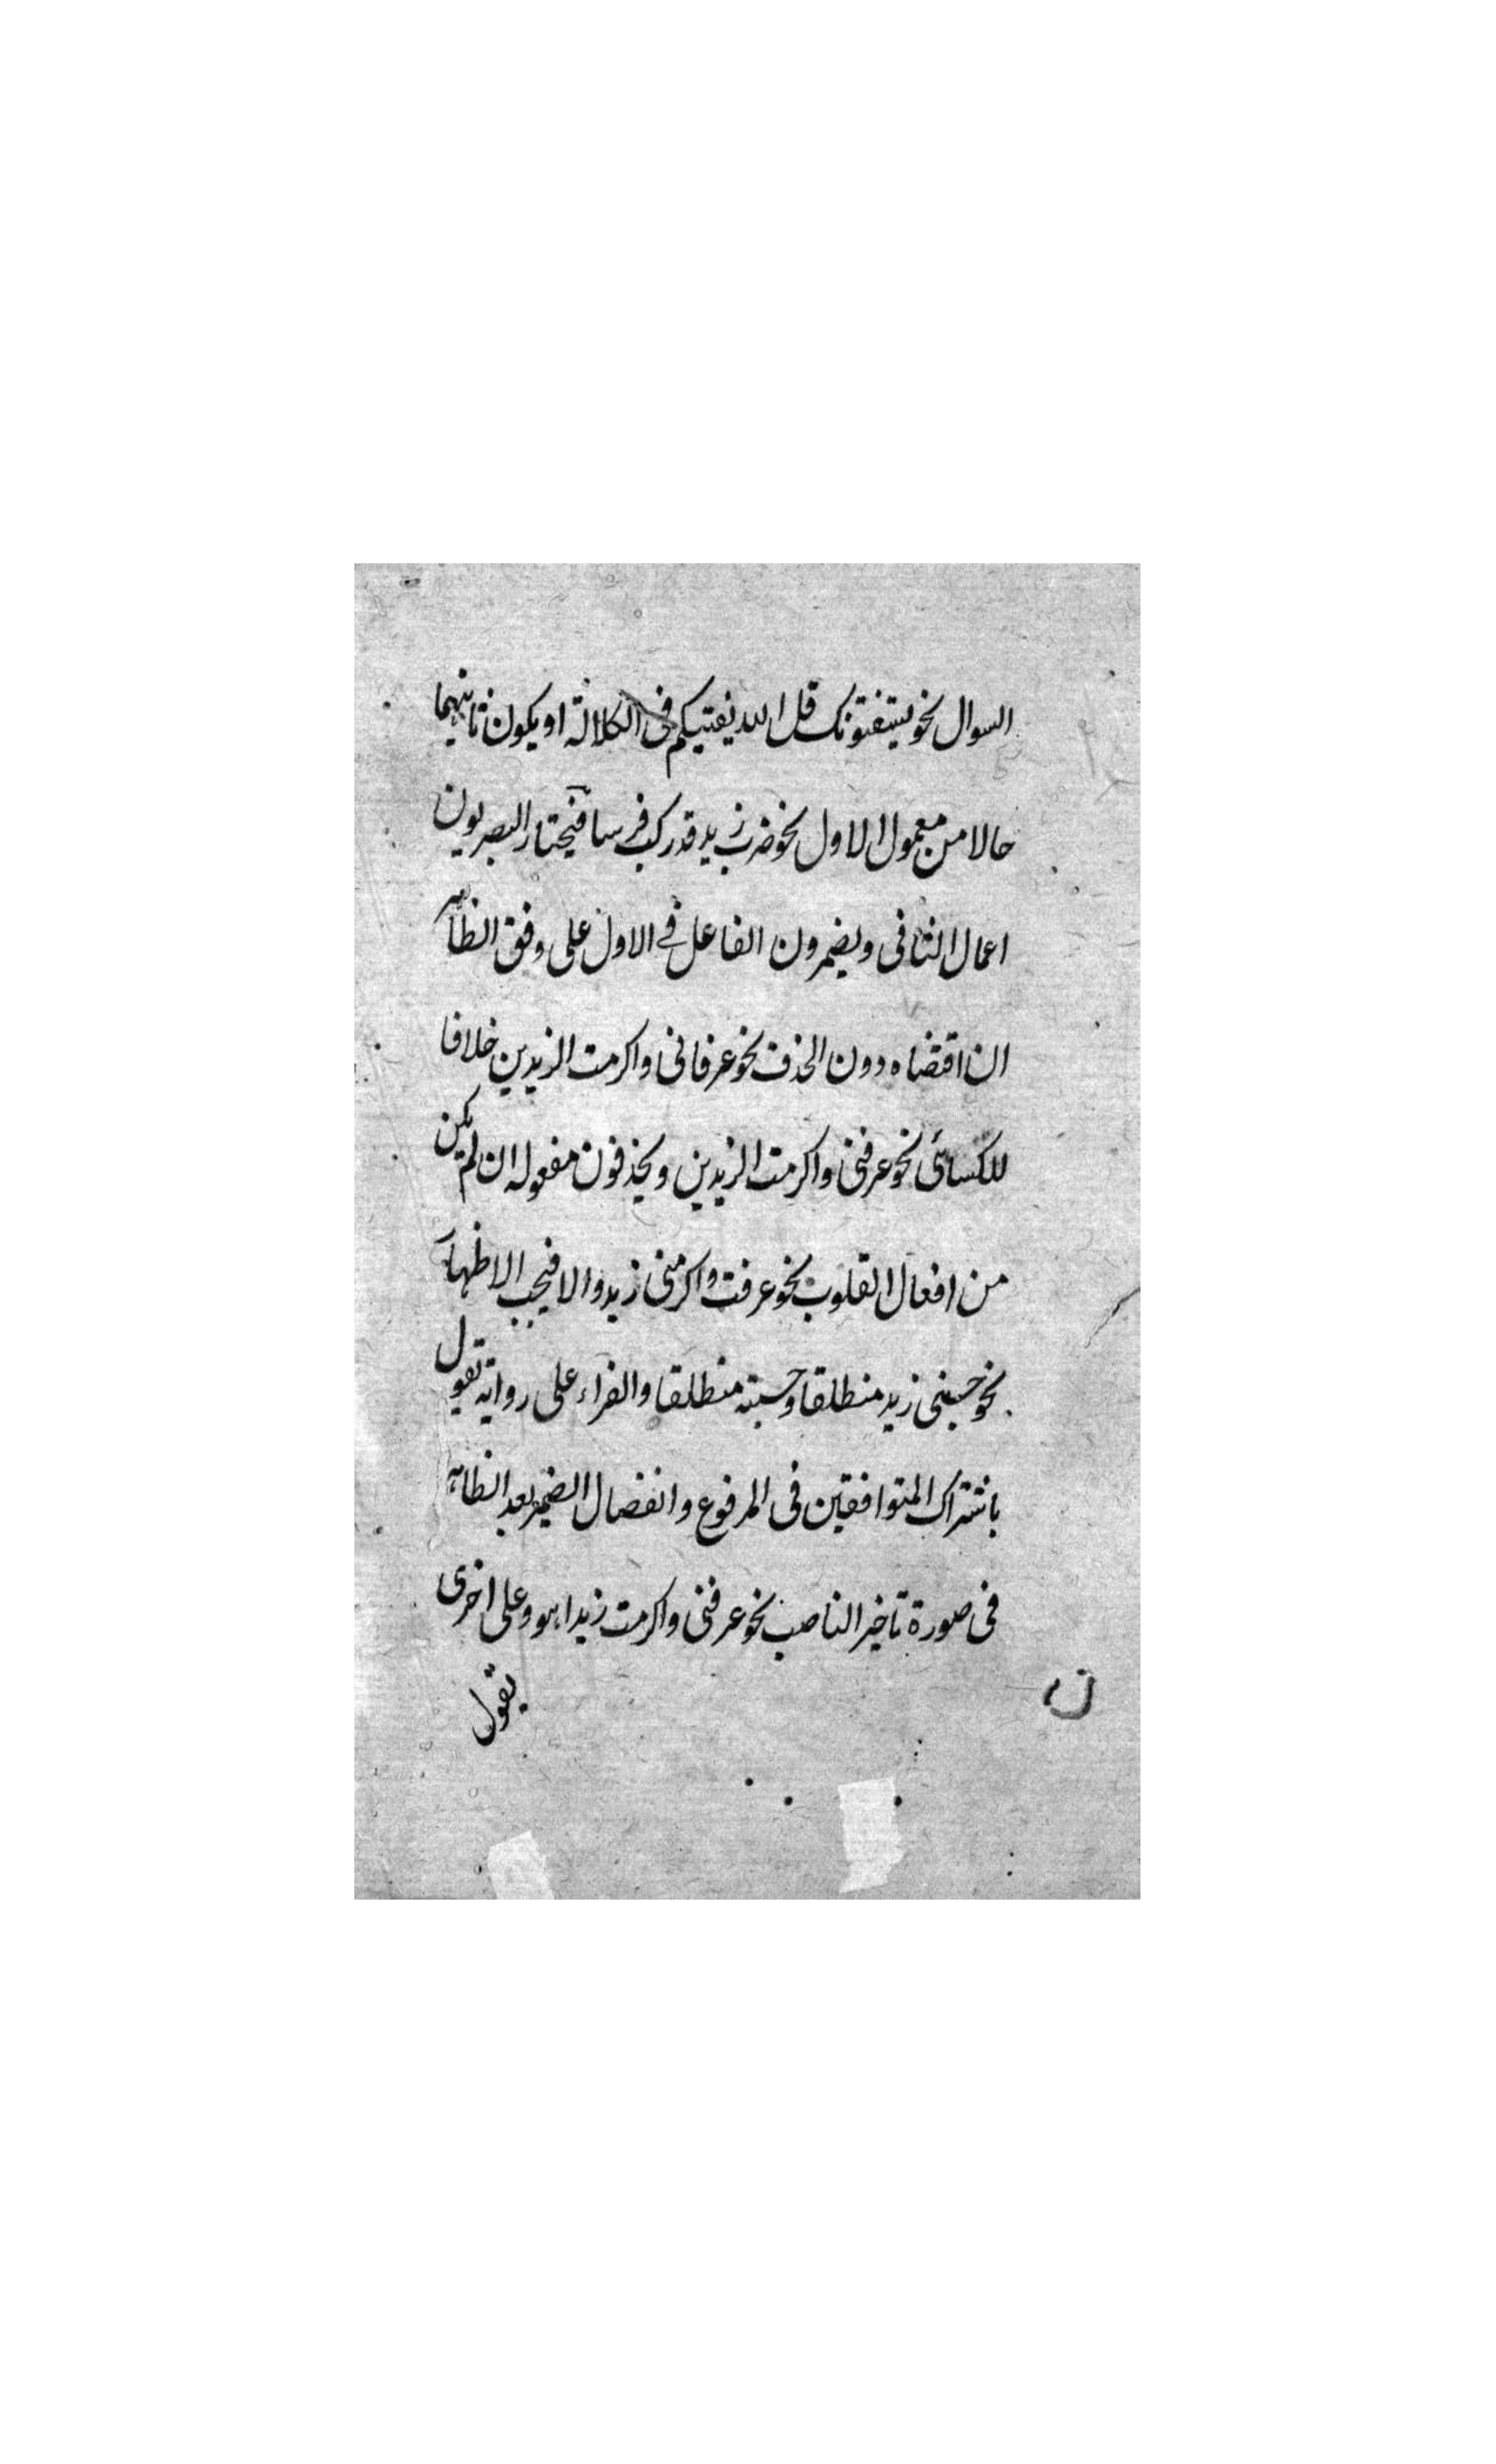 السوال نحو يستفتونك قل الله يفتيكم فى الكلالة او يكون ثانيهما
حالا من معمول الاول نحو ضرب زيد قد ركب فرسا فيختار البصريون
اعمال الثانى ويضمرون الفاعل فے الاول على وفق الظاهر
ان اقتضاه دون الحذف نحو عرفانى واكرمت الزيدين خلافا
للكسائى نحو عرفنى واكرمت الزيدين ويحذفون مفعوله ان لم يكن
من افعال القلوب نحو عرفت واكرمنى زيد والا فيجب الاظهار
نحو حسبنى زيد منطلقا وحسبته منطلقا والفراء على رواية تقول
باشتراك المتوافقين فى المرفوع وانفصال الضمير بعد الظاهر
فى صورة تاخير الناصب نحو عرفنى واكرمت زيدا هو وعلى اخرى
تقول